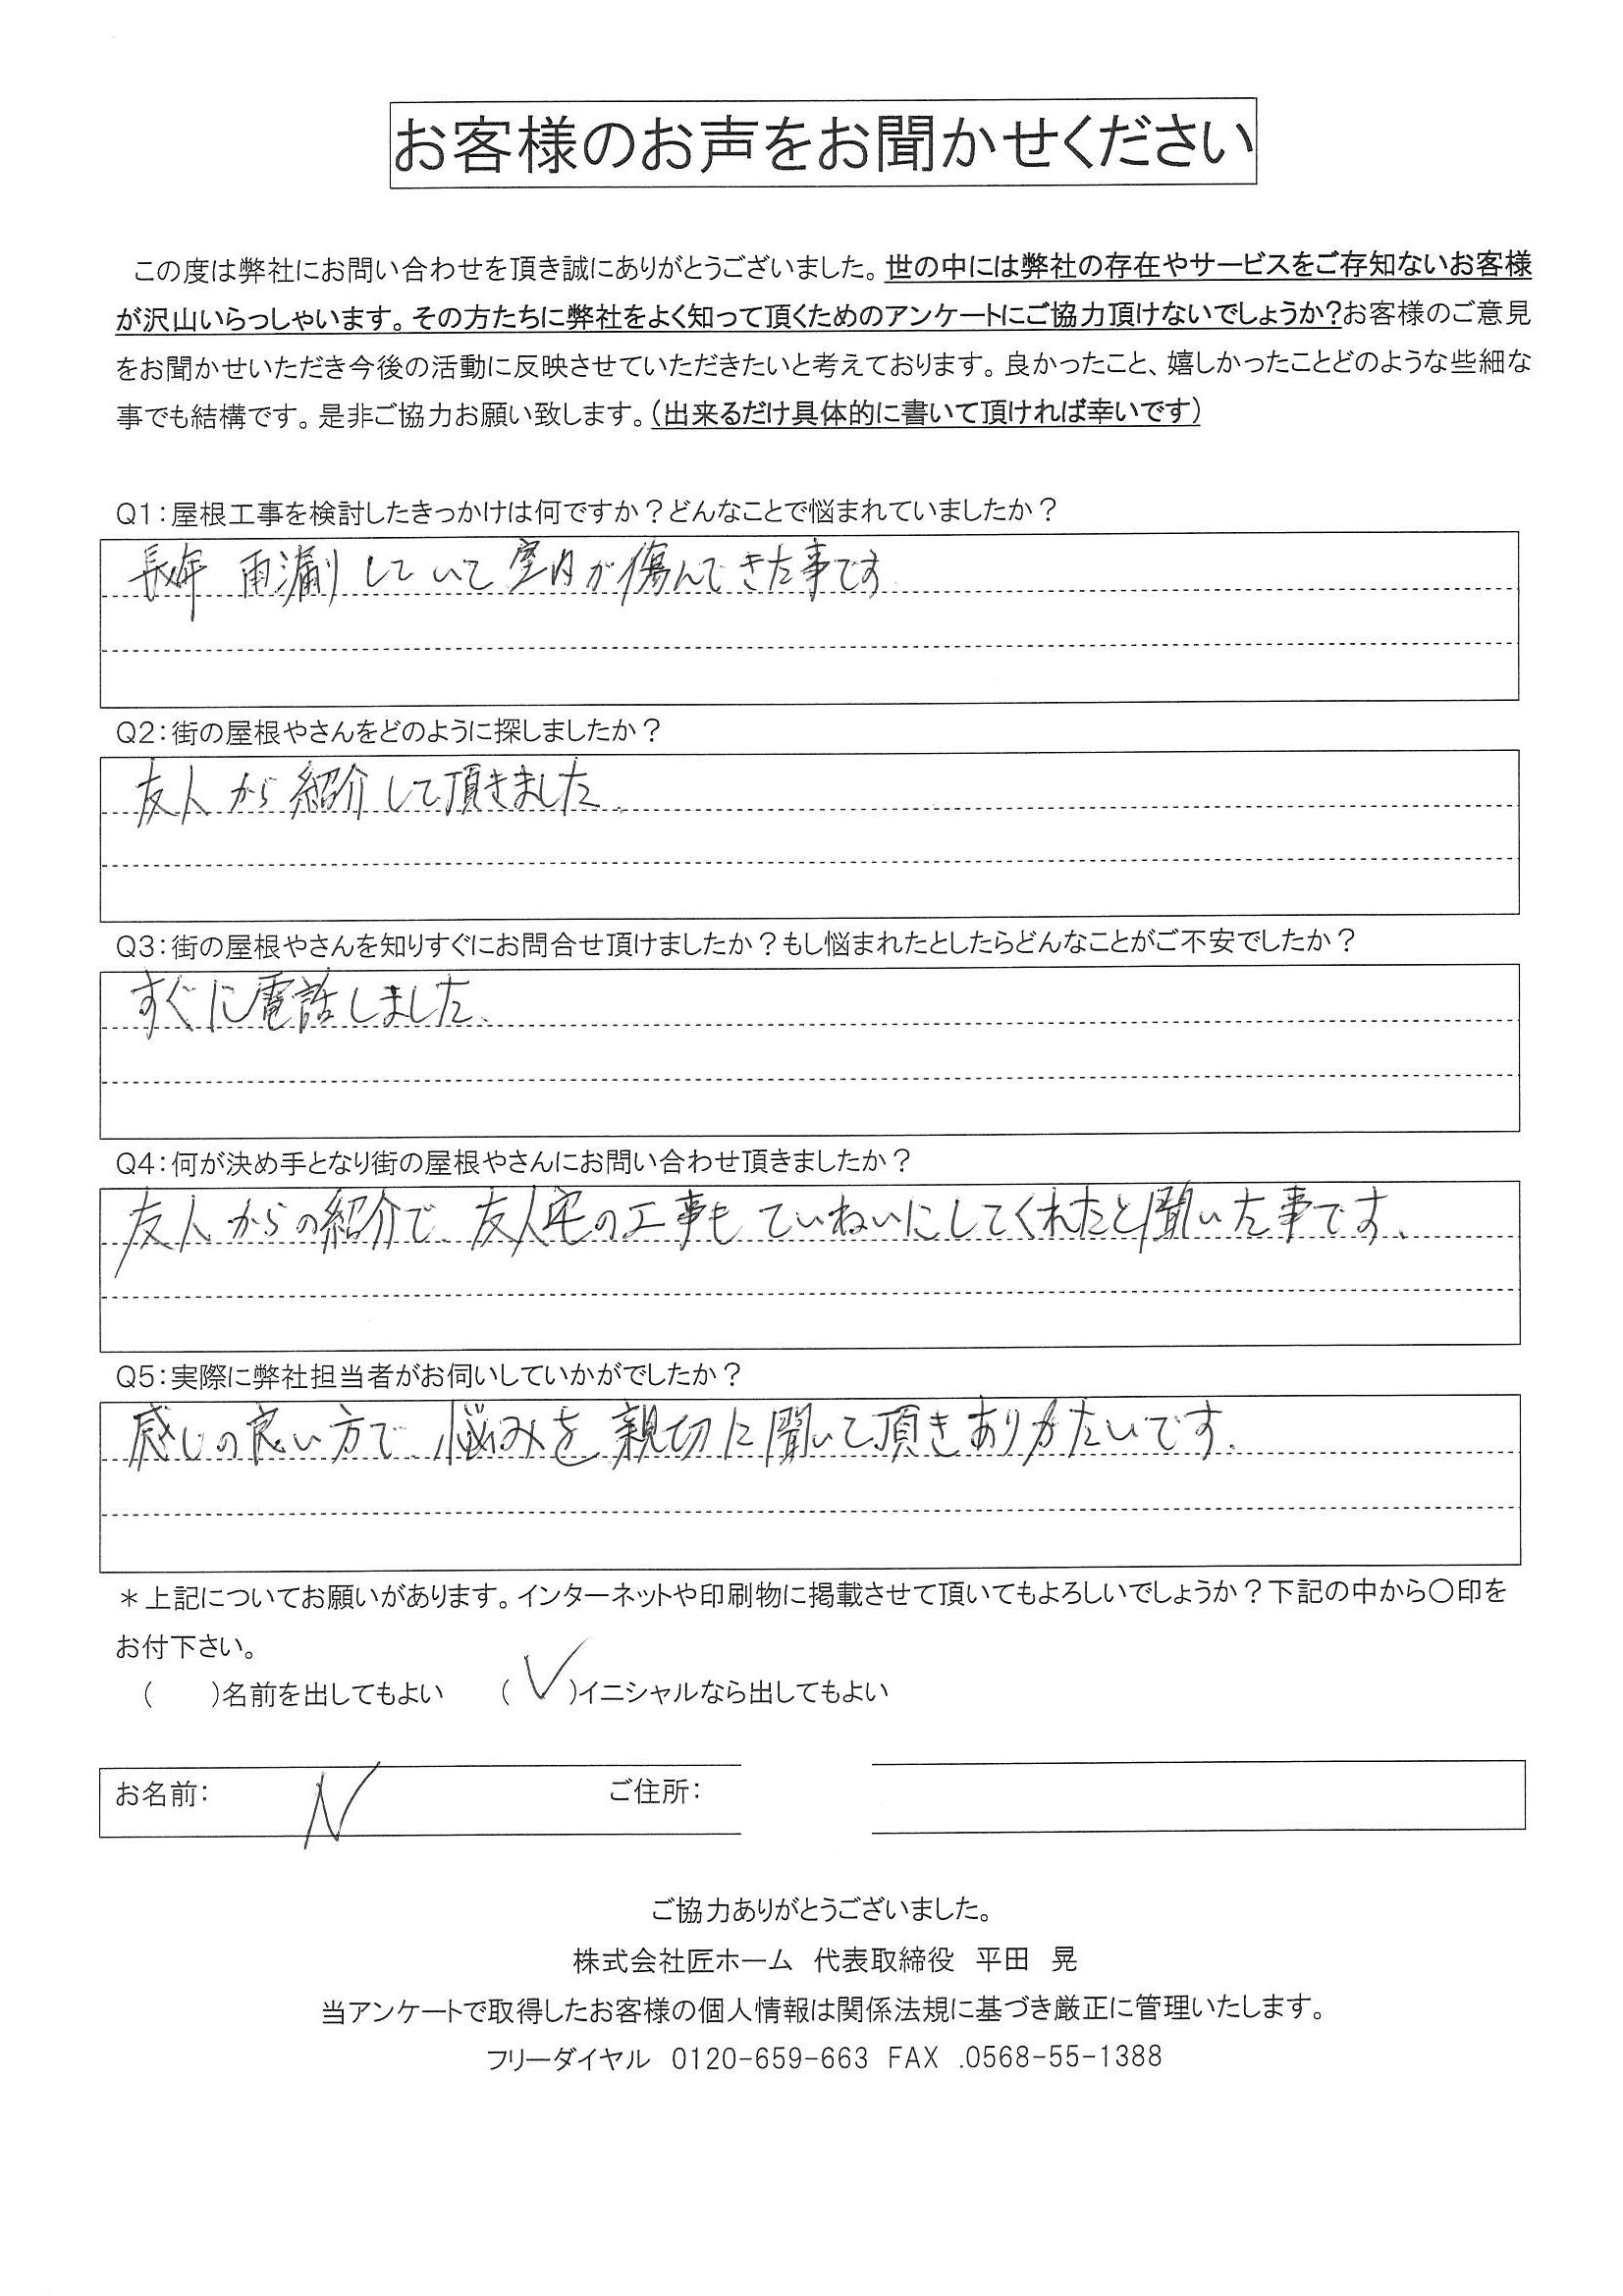 お客様のお声をお聞かせください
この度は弊社にお問い合わせを頂き誠にありがとうございました。世の中には弊社の存在やサービスをご存知ないお客様
が沢山いらっしゃいます。その方たちに弊社をよく知って頂くためのアンケートにご協力頂けないでしょうか?お客様のご意見
をお聞かせいただき今後の活動に反映させていただきたいと考えております。良かったこと、嬉しかったことどのような些細な
事でも結構です。是非ご協力お願い致します。(出来るだけ具体的に書いて頂ければ幸いです)
Q1:屋根工事を検討したきっかけは何ですか?どんなことで悩まれていましたか?
長年 雨漏りしていて室内が傷んできた事です
Q2:街の屋根やさんをどのように探しましたか?
友人から紹介して頂きました。
Q3:街の屋根やさんを知りすぐにお問合せ頂けましたか?もし悩まれたとしたらどんなことがご不安でしたか?
すぐに電話しました。
Q4:何が決め手となり街の屋根やさんにお問い合わせ頂きましたか?
友人からの紹介で、友人宅の工事もていねいにしてくれたと聞いた事です。
Q5:実際に弊社担当者がお伺いしていかがでしたか?
感じの良い方で、悩みを親切に聞いて頂きありがたいです。
*上記についてお願いがあります。インターネットや印刷物に掲載させて頂いてもよろしいでしょうか?下記の中から〇印を
お付下さい。
( )名前を出してもよい (✓)イニシャルなら出してもよい
お名前: N ご住所:
ご協力ありがとうございました。
株式会社匠ホーム 代表取締役 平田 晃
当アンケートで取得したお客様の個人情報は関係法規に基づき厳正に管理いたします。
フリーダイヤル 0120-659-663 FAX .0568-55-1388